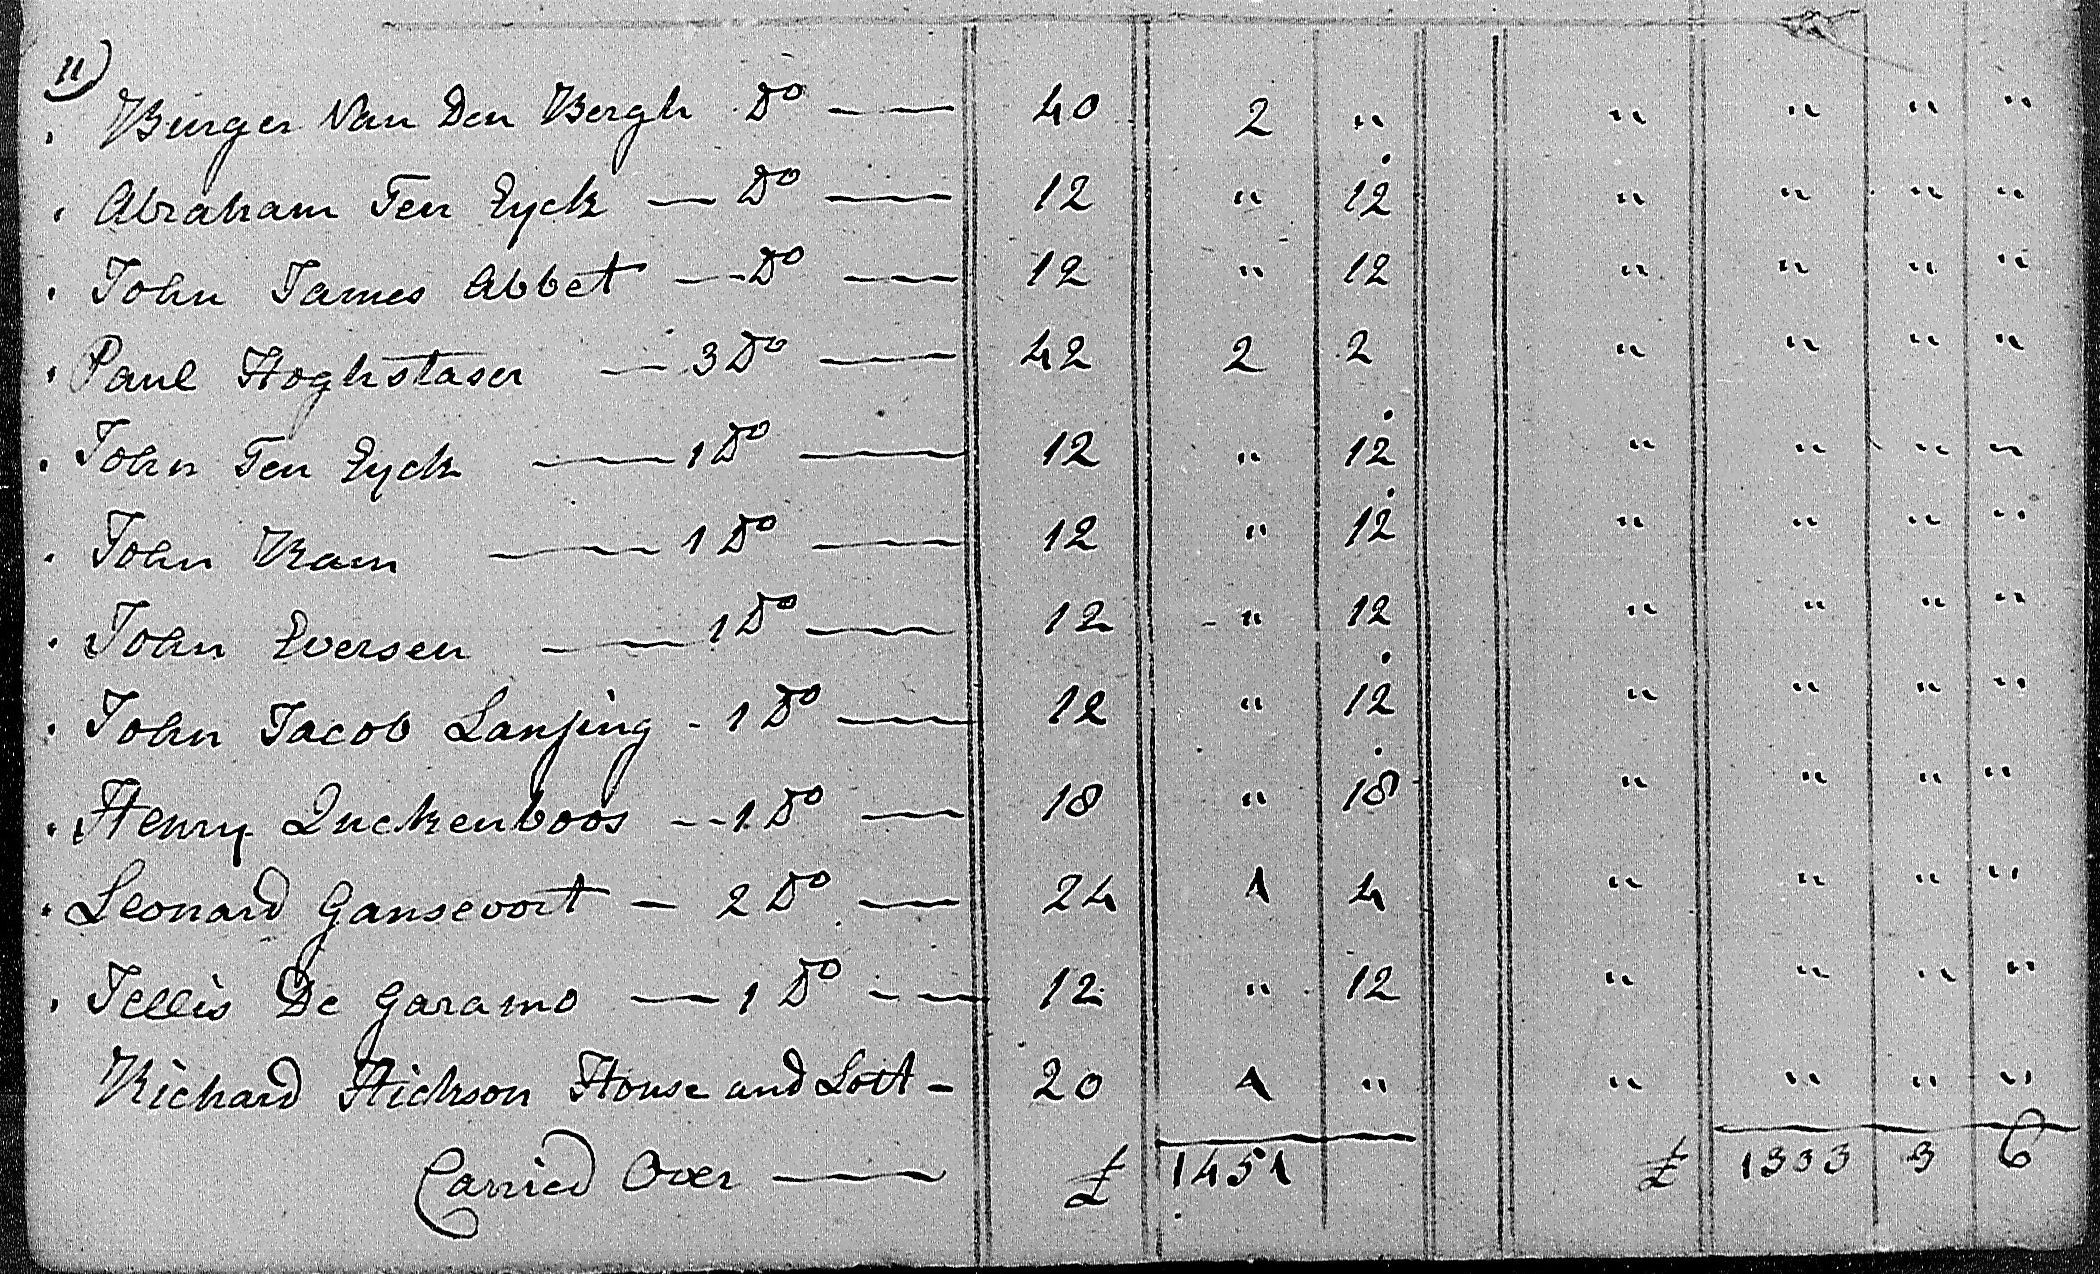 11)
Burger Van Den Bergh Do — 40 2 " " " " "
Abraham Ten Eyck — Do — 12 " 12 " " " "
John James Abbet — Do — 12 " 12 " " " "
Paul Hoghstaser — 3 Do — 42 2 2 " " " "
John Ten Eyck — 1 Do — 12 " 12 " " " "
John Ram — 1 Do — 12 " 12 " " " "
John Eversen — 1 Do — 12 " 12 " " " "
John Jacob Lansing - 1 Do — 12 " 12 " " " "
Henry Quckenboos -- 1 Do — 18 " 18 " " " "
Leonard Gansevort — 2 Do — 24 1 4 " " " "
Jellis De Garamo — 1 Do — 12 " 12 " " " "
Richard Hickson House and Lott - 20 1 " " " " "
Carried Over — £ 1451 £ 1333 3 6